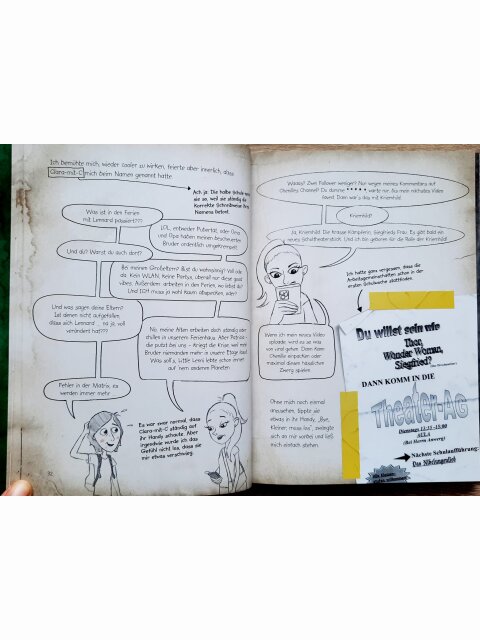 Ich bemühte mich, wieder cooler zu wirken, feierte aber innerlich, dass
Clara-mit-C mich beim Namen genannt hatte.
Ach ja: Die halbe Schule nennt
sie so, weil sie ständig die
korrekte Schreibweise ihres
Namens betont.
Was ist in den Ferien
mit Lennard passiert???
LOL, entweder Pubertät, oder Oma
und Opa haben meinen bescheuerten
Bruder ordentlich umgekrempelt.
Und du? Warst du auch dort?
Bei meinen Großeltern? Bist du wahnsinnig? Voll öde
da. Kein WLAN, keine Partys, überall nur diese good
vibes. Außerdem: arbeiten in den Ferien, wo lebst du?
Und ICH muss ja wohl kaum abspecken, oder?
Und was sagen deine Eltern?
Ist denen nicht aufgefallen,
dass sich Lennard ... na ja, voll
verändert hat???
No, meine Alten arbeiten doch ständig oder
chillen in unserem Ferienhaus. Aber Patricia –
die putzt bei uns – kriegt die Krise, weil mein
Bruder niemanden mehr in unsere Etage lässt.
Was soll's, Little Lenni lebte schon immer
auf nem anderen Planeten.
Fehler in der Matrix, es
werden immer mehr ...
Es war zwar normal, dass
Clara-mit-C ständig auf
ihr Handy schaute. Aber
irgendwie wurde ich das
Gefühl nicht los, dass sie
mir etwas verschwieg.
32
Waaas? Zwei Follower weniger? Nur wegen meines Kommentars auf
Channel? Du dumme *****, warte nur, bis mein nächstes Video
Dann war's das mit Kriemhild.
Kriemhild?
Ja, Kriemhild. Die krasse Kämpferin, Siegfrieds Frau. Es gibt bald ein
neues Schultheaterstück. Und ich bin geboren für die Rolle der Kriemhild.
Ich hatte ganz vergessen, dass die
Arbeitsgemeinschaften schon in der
ersten Schulwoche stattfinden.
Wenn ich mein neues Video
uploade, wird zu so was
von viral gehen. Dann kann
einpacken oder
maximal diesen hässlichen
Zwerg spielen.
Ohne mich noch einmal
anzusehen, tippte sie
etwas in ihr Handy. „Bye,
Kleiner, muss los", zwängte
sich an mir vorbei und ließ
mich einfach stehen.
Du willst sein wie
Thor,
Wonder Woman,
Siegfried?
DANN KOMM IN DIE
Theater-AG
Dienstags
AULA
(Bei Herrn
Nächste Schulaufführung:
Das Nibelungenlied